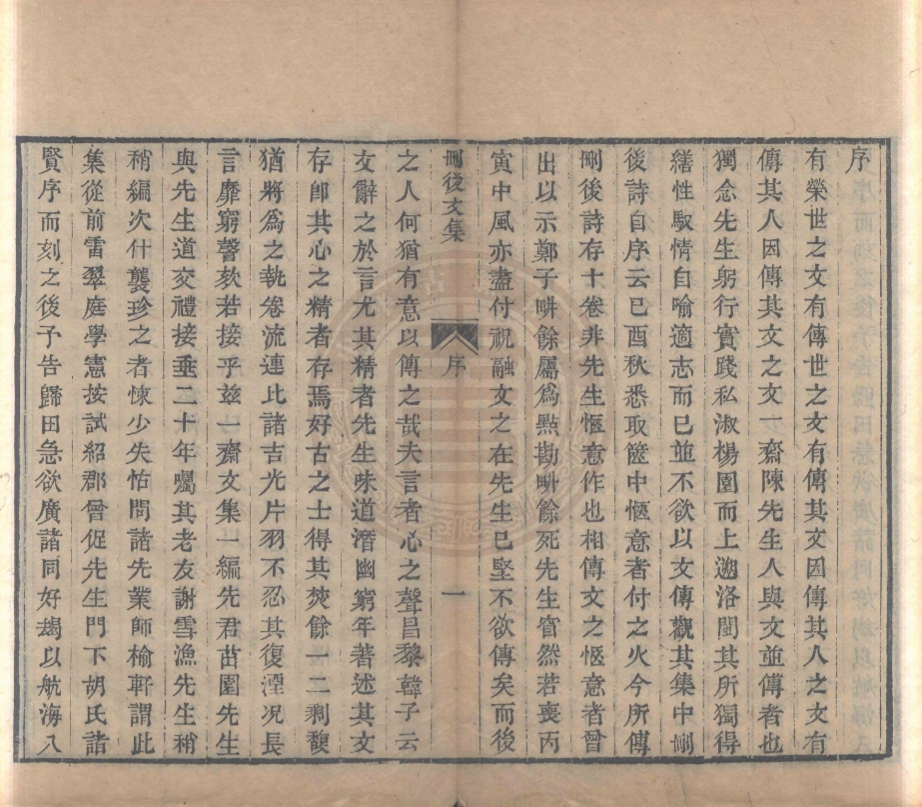 序
有榮世之文有傳世之文有傳其文因傳其人之文有
傳其人因傳其文之文一齋陳先生人與文並傳者也
獨念先生躬行實踐私淑楊園而上遡洛閩其所獨得
繕性馭情自喻適志而已並不欲以文傳觀其集中刪
後詩自序云已酉秋悉取篋中愜意者付之火今所傳
刪後詩存十卷非先生愜意作也相傳文之愜意者曾
出以示鄭子畊餘屬爲點勘畊餘死先生窅然若喪丙
寅中風亦盡付祝融文之在先生已堅不欲傳矣而後
刪後文集
序
一
之人何猶有意以傳之哉夫言者心之聲昌黎韓子云
文辭之於言尤其精者先生味道潛幽窮年著述其文
存卽其心之精者存焉好古之士得其焚餘一二剩馥
猶將爲之執卷流連比諸吉光片羽不忍其復湮况長
言靡窮謦欬若接乎兹一齋文集一編先君苗園先生
與先生道交禮接垂二十年囑其老友謝雪漁先生稍
稍編次什襲珍之者悚少失怙問諸先業師榆軒謂此
集從前雷翠庭學憲按試紹郡曾促先生門下胡氏諸
賢序而刻之後予告歸田急欲廣諸同好朅以航海入